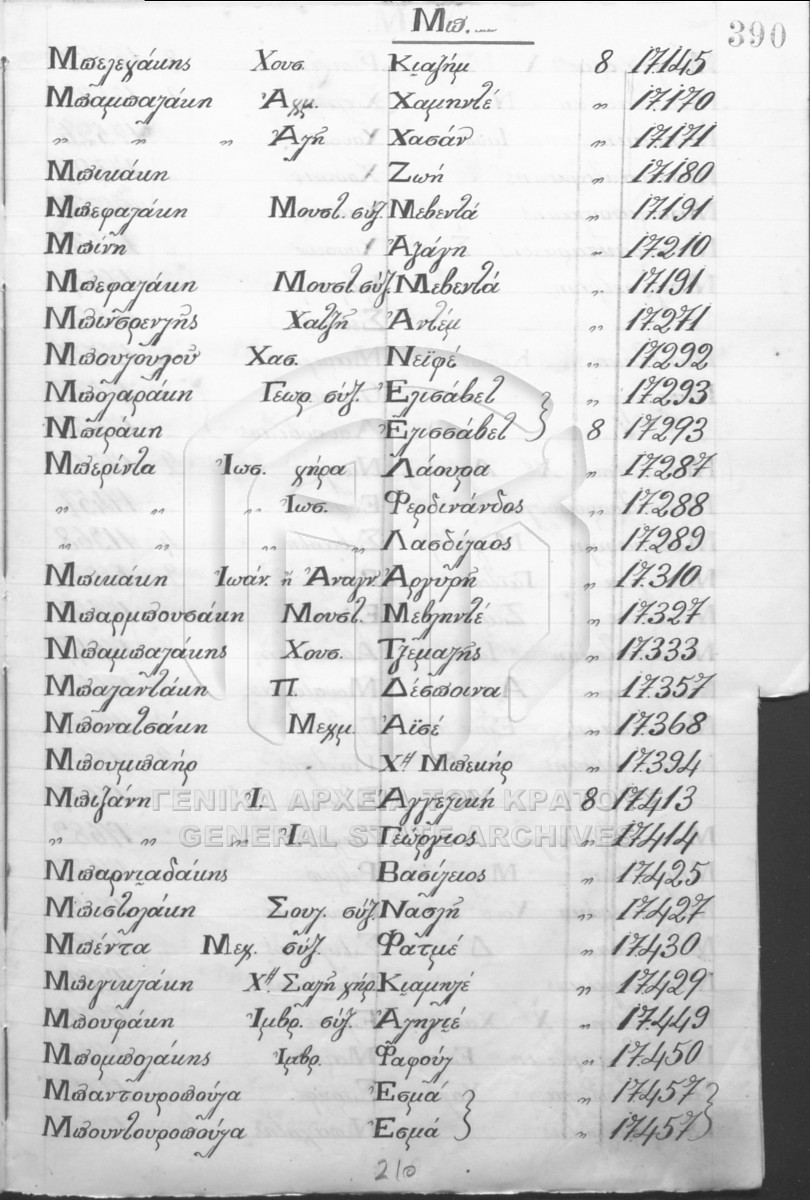 Μπ.
390
Μπελεγάκης Χουσ. Κιαζήμ 8 17.145
Μπαμπαλάκη Ἀχμ. Χαμηντέ „ 17.170
„ „ „ Ἀλῆ Χασάν „ 17.171
Μπικάκη Ζωή „ 17.180
Μπεφαλάκη Μουστ. σύζ. Μεβεντά „ 17.191
Μπίνη Ἀλάγη „ 17.210
Μπεφαλάκη Μουστ. σύζ. Μεβεντά „ 17.191
Χατζῆ Ἀντέμ „ 17.271
Μπουλουλοῦ Χασ. Νεϊφέ „ 17.292
Μπολαράκη Γεωρ. σύζ. Ἐλισάβετ „ 17.293
Μπιράκη Ἐλισσάβετ 8 17.293
Μπερίντα Ἰωσ. χήρα Λάουρα „ 17.287
„ „ „ Ἰωσ. Φερδινάνδος „ 17.288
„ „ „ „ Λασδίλαος „ 17.289
Μπικάκη Ἰωάν. ἤ Ἀναγν. Ἀργυρῆ „ 17.310
Μπαρμπουσάκη Μουστ. Μεβληντέ „ 17.327
Μπαμπαλάκης Χουσ. Τζεμαλῆς „ 17.333
Μπαλαντάκη Π. Δέσποινα „ 17.357
Μπονατσάκη Μεχμ. Ἀϊσέ „ 17.368
Μπουμπαήρ Χῆ Μπεκήρ „ 17.394
Μπιζάνη Ι. Ἀγγελική 8 17.413
„ „ „ Ι. Γεώργιος „ 17.414
Μπαρνιαδάκης Βασίλειος „ 17.425
Μπιστολάκη Σουλ. σύζ. Νασλῆ „ 17.427
Μπέντα Μεχ. σύζ. Φατμέ „ 17.430
Μπιγικλάκη Χῆ Σαλῆ χήρ. Κιαμηλέ „ 17.429
Μπουφάκη Ἰμβρ. σύζ. Ἀληγιέ „ 17.449
Μπομπολάκης Ἰμβρ. Φαφούλ „ 17.450
Μπαντουροπούλα Ἐσμά „ 17.457
Μπουντουροπούλα Ἐσμά „ 17.457
210
ΓΕΝΙΚΑ ΑΡΧΕΙΑ ΤΟΥ ΚΡΑΤΟΥΣ
GENERAL STATE ARCHIVES